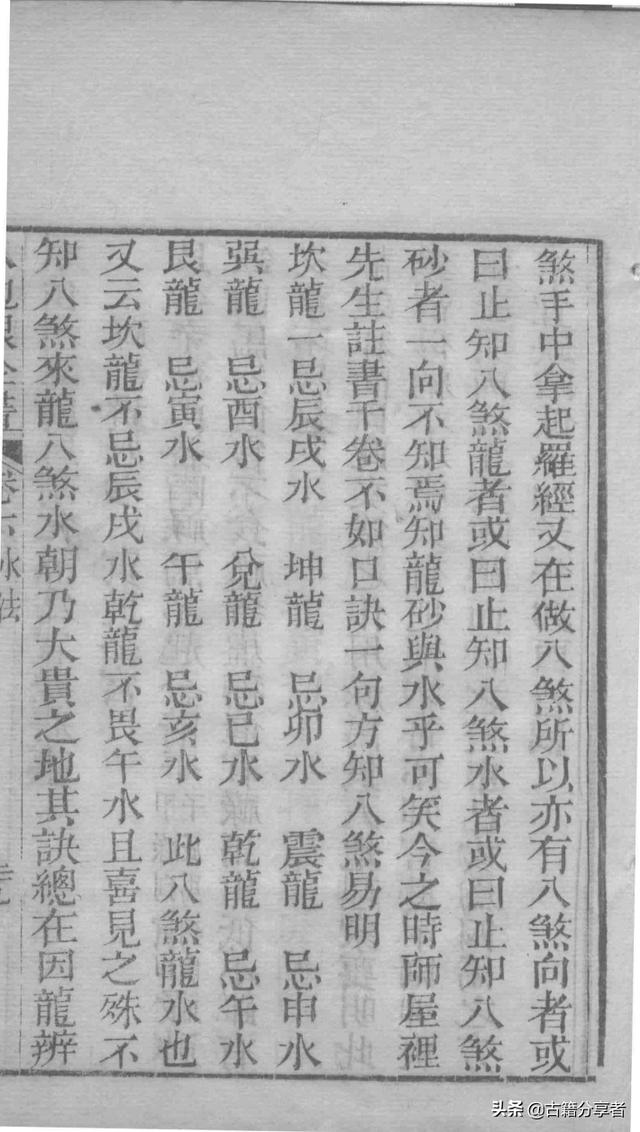 煞手中拿起羅經又在做八煞所以亦有八煞向者或
曰止知八煞龍者或曰止知八煞水者或曰止知八煞
砂者一向不知焉知龍砂與水乎可笑今之時師屋裡
先生註書千卷不如口訣一句方知八煞易明
坎龍一忌辰戌水 坤龍 忌卯水 震龍 忌申水
巽龍 忌酉水 兌龍 忌巳水 乾龍 忌午水
艮龍 忌寅水 午龍 忌亥水 此八煞龍水也
又云坎龍不忌辰戌水乾龍不畏午水且喜見之殊不
知八煞來龍八煞水朝乃大貴之地其訣總在因龍辨
卷六 水法
头条 @古籍分享者